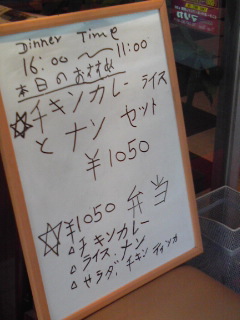 Dinner Time
16:00〜11:00
本日のおすすめ
☆チキンカレー ライス
と ナン セット
¥1050
☆¥1050 弁当
△チキンカレー
△ライス:ナン
△サラダ:チキンティッカ